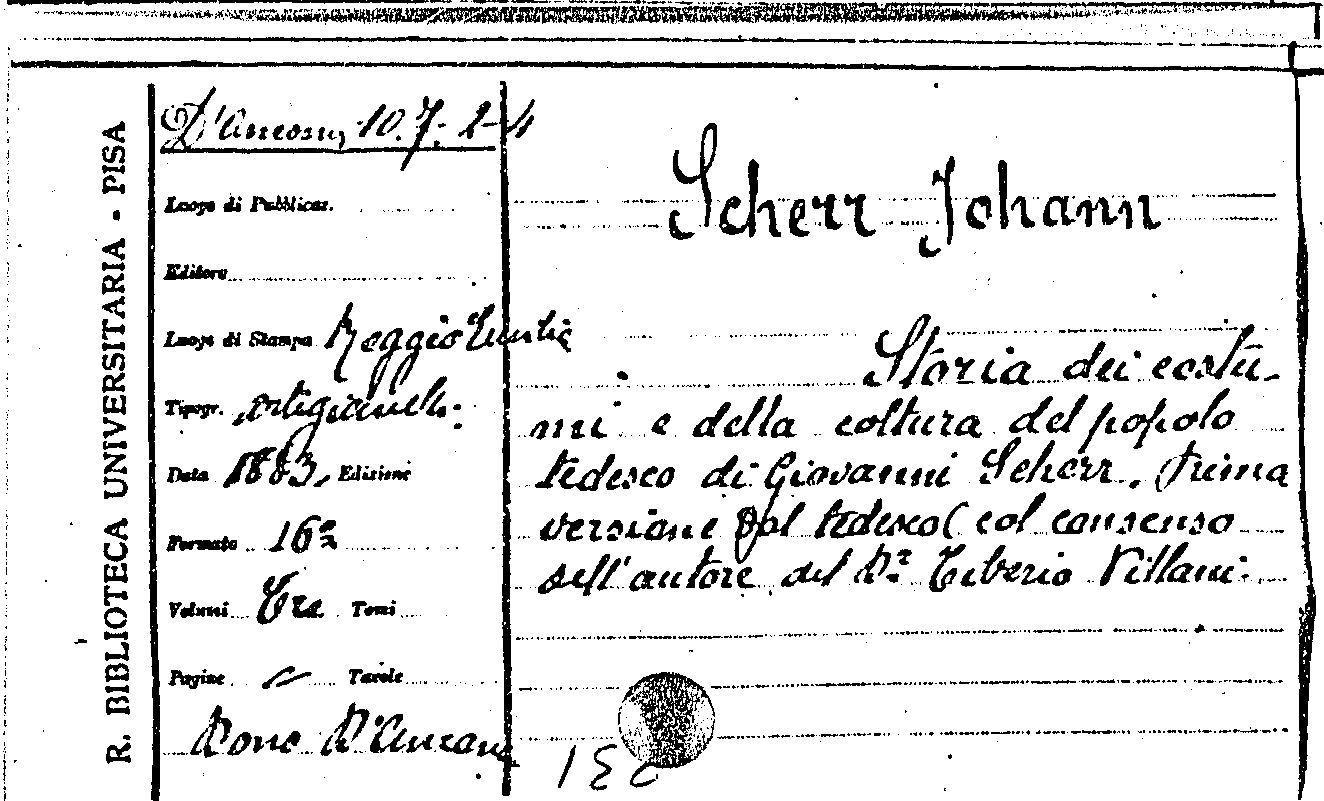 R. BIBLIOTECA UNIVERSITARIA - PISA
D'Ancona, 10.7.2-4
Luogo di Pubblicaz.
Editore
Luogo di Stampa Reggio Emilia
Tipogr. Artigianelli
Data 1883, Edizione
Formato 16º
Volumi Tre Tomi
Pagine Tavole
Dono D'Ancona
Scherr Johann
Storia dei costu-
mi e della coltura del popolo
tedesco di Giovanni Scherr. Prima
versione dal tedesco (col consenso
dell'autore del Dr. Tiberio Villani.